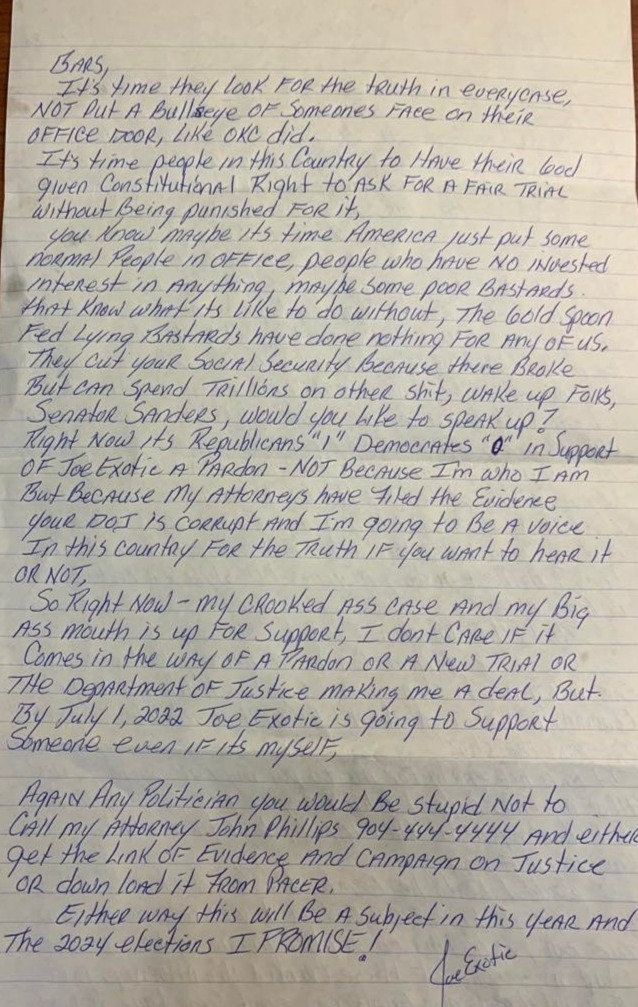 BARS,
It's time they look FOR the truth in everycase,
NOT Put A Bullseye OF Someones FACE on their
OFFICE DOOR, Like OKC did.
It's time people in this Country to HAVE their God
given Constitutional Right to ASK FOR A FAIR TRIAL
without Being punished FOR it,
you know maybe its time AMERICA just put some
normal People in OFFICE, people who have NO invested
interest in Anything, maybe some poor BASTARDS
that know what its like to do without, The Gold Spoon
Fed Lying BASTARDS have done nothing FOR Any OF US.
They cut your Social Security Because there Broke
But can Spend Trillions on other shit, wake up Folks,
Senator Sanders, would you like to speak up?
Right Now its Republicans "1" Democrates "0" in Support
OF Joe Exotic A PArdon - NOT Because I'm who I AM
But Because my Attorneys have filed the Evidence
your DOJ is corrupt And I'm going to Be A voice
In this country For the Truth IF you want to hear it
OR NOT,
So Right Now - my CROOKED ASS CASE And my Big
ASS mouth is up FOR Support, I dont CARE IF it
Comes in the way OF A PArdon OR A New TRIAl OR
The Department of Justice making me A deal, But
By July 1, 2022 Joe Exotic is going to Support
Someone even IF its myself,
AgAin Any Politician you would Be stupid Not to
CAll my Attorney John Phillips 904-444-4444 And either
get the Link OF Evidence And CAMPAign on Justice
OR down load it From PACER.
Either way this will Be A Subject in this year And
The 2024 elections I PROMISE!
Joe Exotic